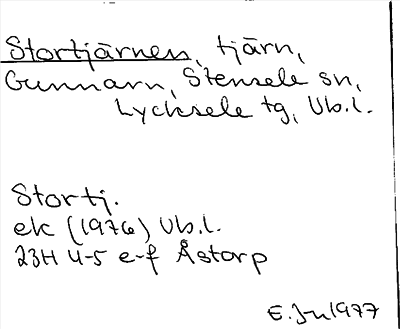 Stortjärnen, tjärn,
Gunnarn, Stensele sn,
Lycksele tg, Vb.l.
Stortj.
ek (1976) Vb.l.
23H 4-5 e-f Åstorp
E.Jn 1977